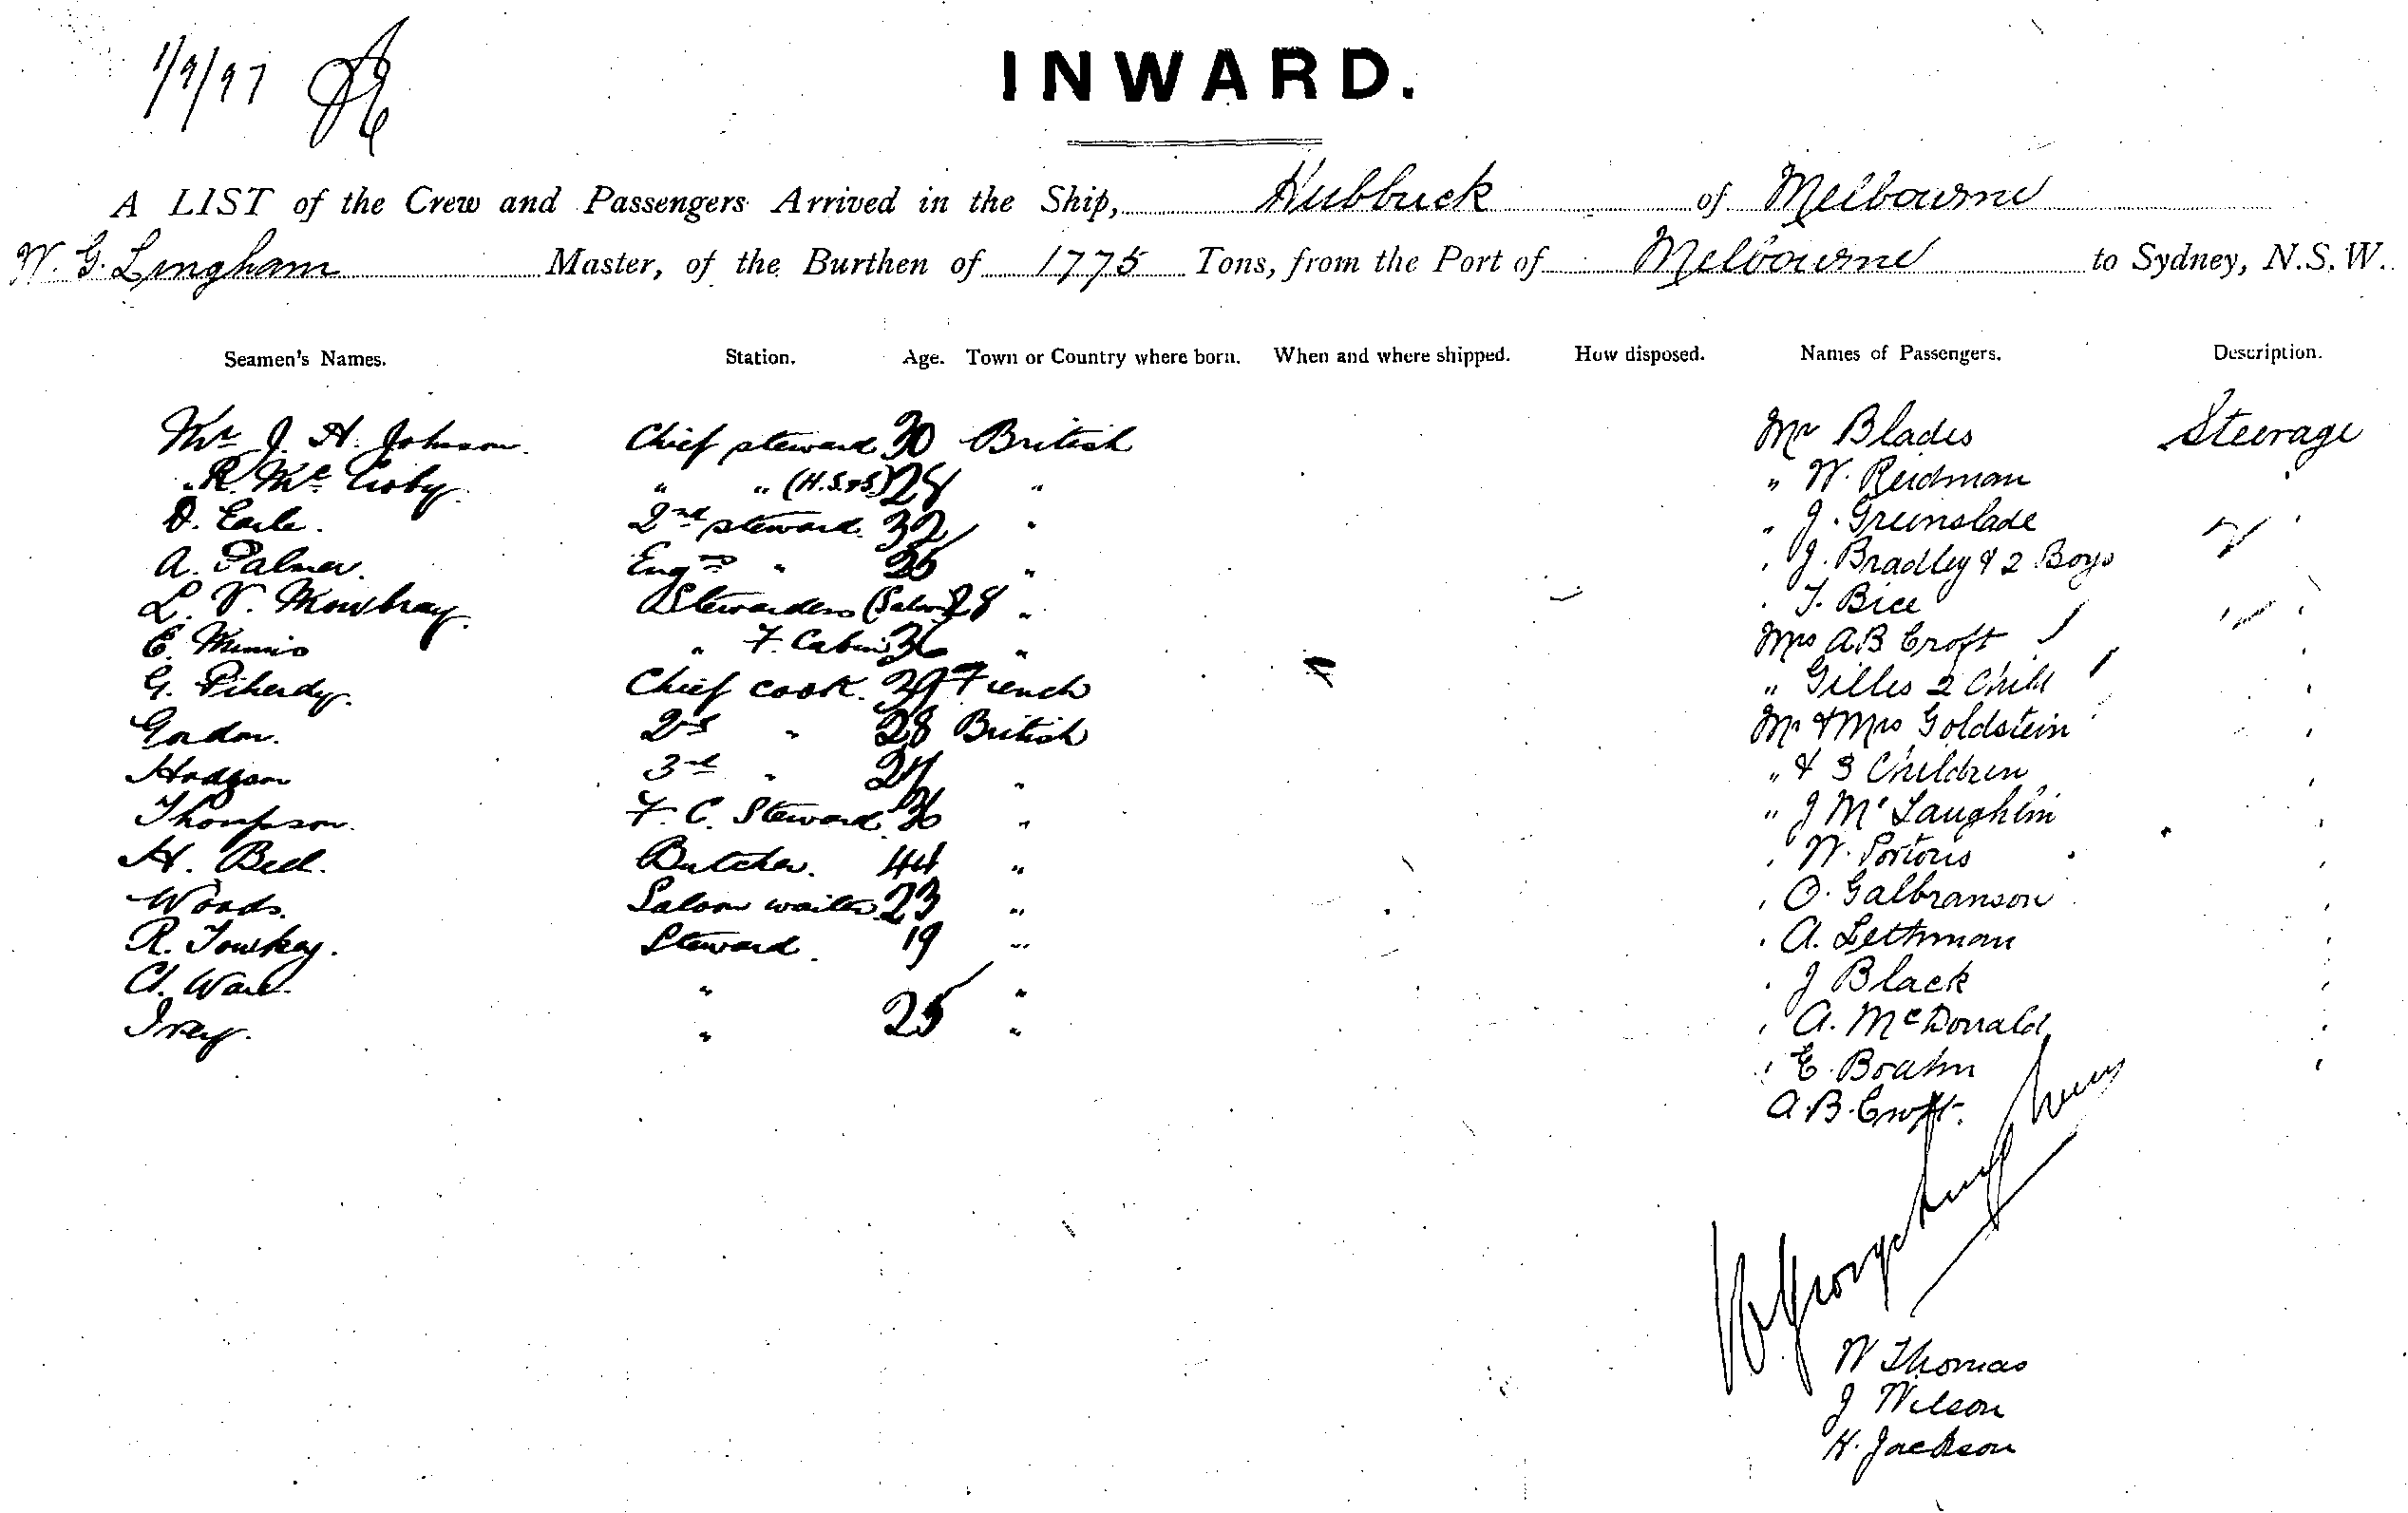 1/9/97
INWARD.
A LIST of the Crew and Passengers Arrived in the Ship, Hubbuck of Melbourne
W. G. Lingham Master, of the Burthen of 1775 Tons, from the Port of Melbourne to Sydney, N.S.W.
Seamen's Names. Station. Age. Town or Country where born. When and where shipped. How disposed. Names of Passengers. Description.
Mr J. H. Johnson. Chief steward 30 British Mr Blades Steerage
" R. Mc " " (H.S.&S.) 28 " " W. Reidman "
D. Earle. 2nd steward. 32 " " J. Greenslade "
A. Palmer. " " J. Bradley & 2 Boys
L. V. Mowbray. Stewardess (Saloon) 28 " " T. Bice "
E. " F. Cabin 36 " Mrs A.B Croft "
G. Chief cook. 39 French " Gilles 2 Child "
Gordon. 2nd " 28 British Mr & Mrs Goldstein "
Hodgson 3rd " " " & 3 Children "
Thompson. F. C. Steward 36 " " J McLaughlin "
H. Bell. Butcher. 44 " " W. "
Woods. Saloon waiter 23 " " O. Galbranson "
R. Steward. 19 " " A. Lethman "
Ware. " " " J Black "
" 25 " " A. McDonald "
" E. "
A.B. Croft.
W Thomas
J Wilson
H. Jackson